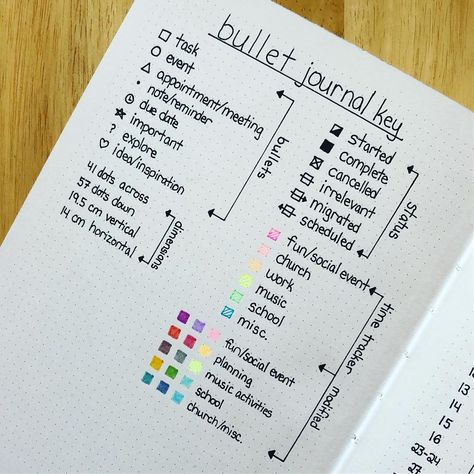 bullet journal key
task
event
appointment/meeting
note/reminder
due date
important
? explore
idea/inspiration
bullets
41 dots across
57 dots down
19.5 cm vertical
14 cm horizontal
dimensions
started
complete
cancelled
irrelevant
migrated
scheduled
status
fun/social event
church
work
music
school
misc.
time tracker
fun/social event
planning
music activities
school
church/misc.
modified
13
14
15
16
23-24